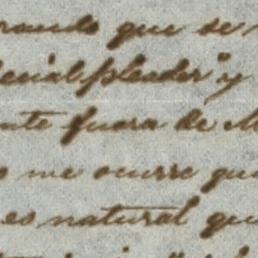 rando que se
cial pleader" y
nte fuera de M
o me ocurre que
es natural qu